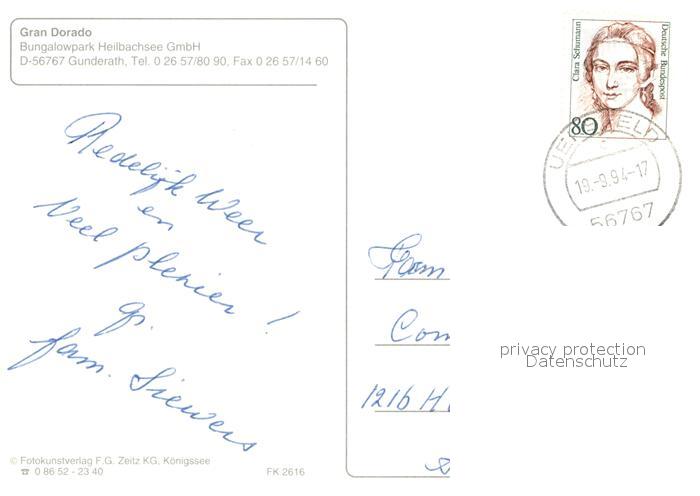 Gran Dorado
Bungalowpark Heilbachsee GmbH
D-56767 Gunderath, Tel. 0 26 57/80 90, Fax 0 26 57/14 60
Clara Schumann
Deutsche Bundespost
80
19.-9.94-17
56767
Redelijk Weer
en
Veel plezier!
gr.
fam. Siewers
Fam
Con
1216 H
privacy protection
Datenschutz
© Fotokunstverlag F.G. Zeitz KG, Königssee
☎ 0 86 52 - 23 40
FK 2616